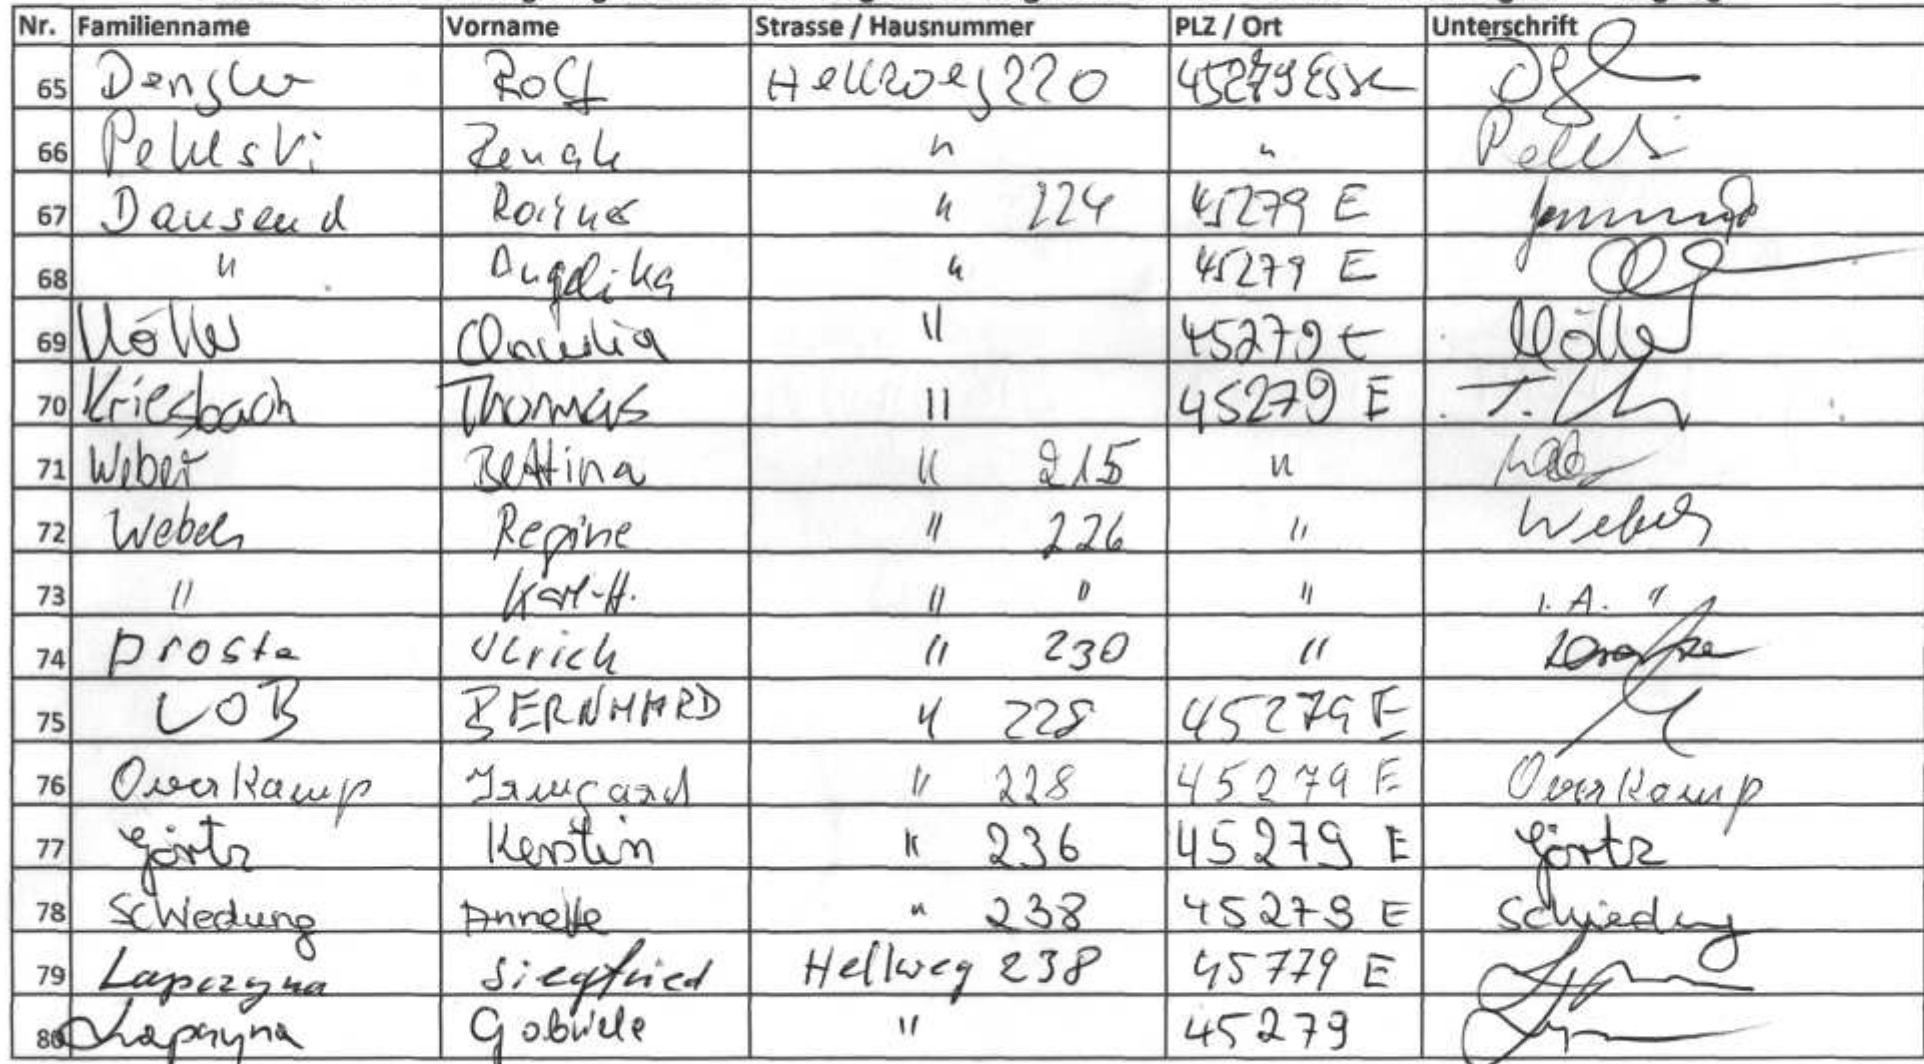 Nr. Familienname Vorname Strasse / Hausnummer PLZ / Ort Unterschrift
65 Dengler Rolf Hellweg 220 45279 Essen
66 " "
67 Dausend Rainer " 224 45279 E
68 " Angelika " 45279 E
69 Möller " 45279 E Möller
70 Kriesbach Thomas " 45279 E
71 Weber Bettina " 215 "
72 Weber Regine " 226 " Weber
73 " Karl-H. " " " i.A. "
74 Proste Ulrich " 230 "
75 LOB BERNHARD " 228 45279 E
76 Overkamp Irmgard " 228 45279 E Overkamp
77 Görtz Kerstin " 236 45279 E Görtz
78 Schiedung Annette " 238 45279 E Schiedung
79 Lapczyna Siegfried Hellweg 238 45779 E
80 Lapczyna Gabriele " 45279